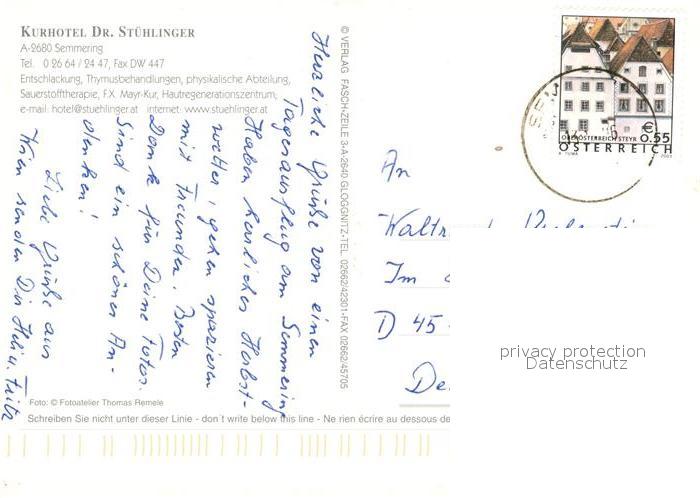 KURHOTEL DR. STÜHLINGER
A-2680 Semmering
Tel. 0 26 64 / 24 47, Fax DW 447
Entschlackung, Thymusbehandlungen, physikalische Abteilung,
Sauerstofftherapie, F.X. Mayr-Kur, Hautregenerationszentrum;
e-mail: hotel@stuehlinger.at internet: www.stuehlinger.at
Herzliche Grüße von einen
Tagesausflug am Semmering
Haben herrliches Herbst-
wetter, gehen spazieren
mit Freunden. Besten
Dank für Deine Fotos.
Sind ein schönes An-
denken!
Liebe Grüße aus
Wien senden Dir Heli u. Fritz
Foto: © Fotoatelier Thomas Remele
Schreiben Sie nicht unter dieser Linie - don´t write below this line - Ne rien écrire au dessous de
© VERLAG FASCH-ZEILE 3-A-2640 GLOGGNITZ-TEL. 02662/42301-FAX 02662/45705
OBERÖSTERREICH STEYR € 0.55
ÖSTERREICH
A. TUMA 2003
An
Im
D 45
privacy protection
Datenschutz